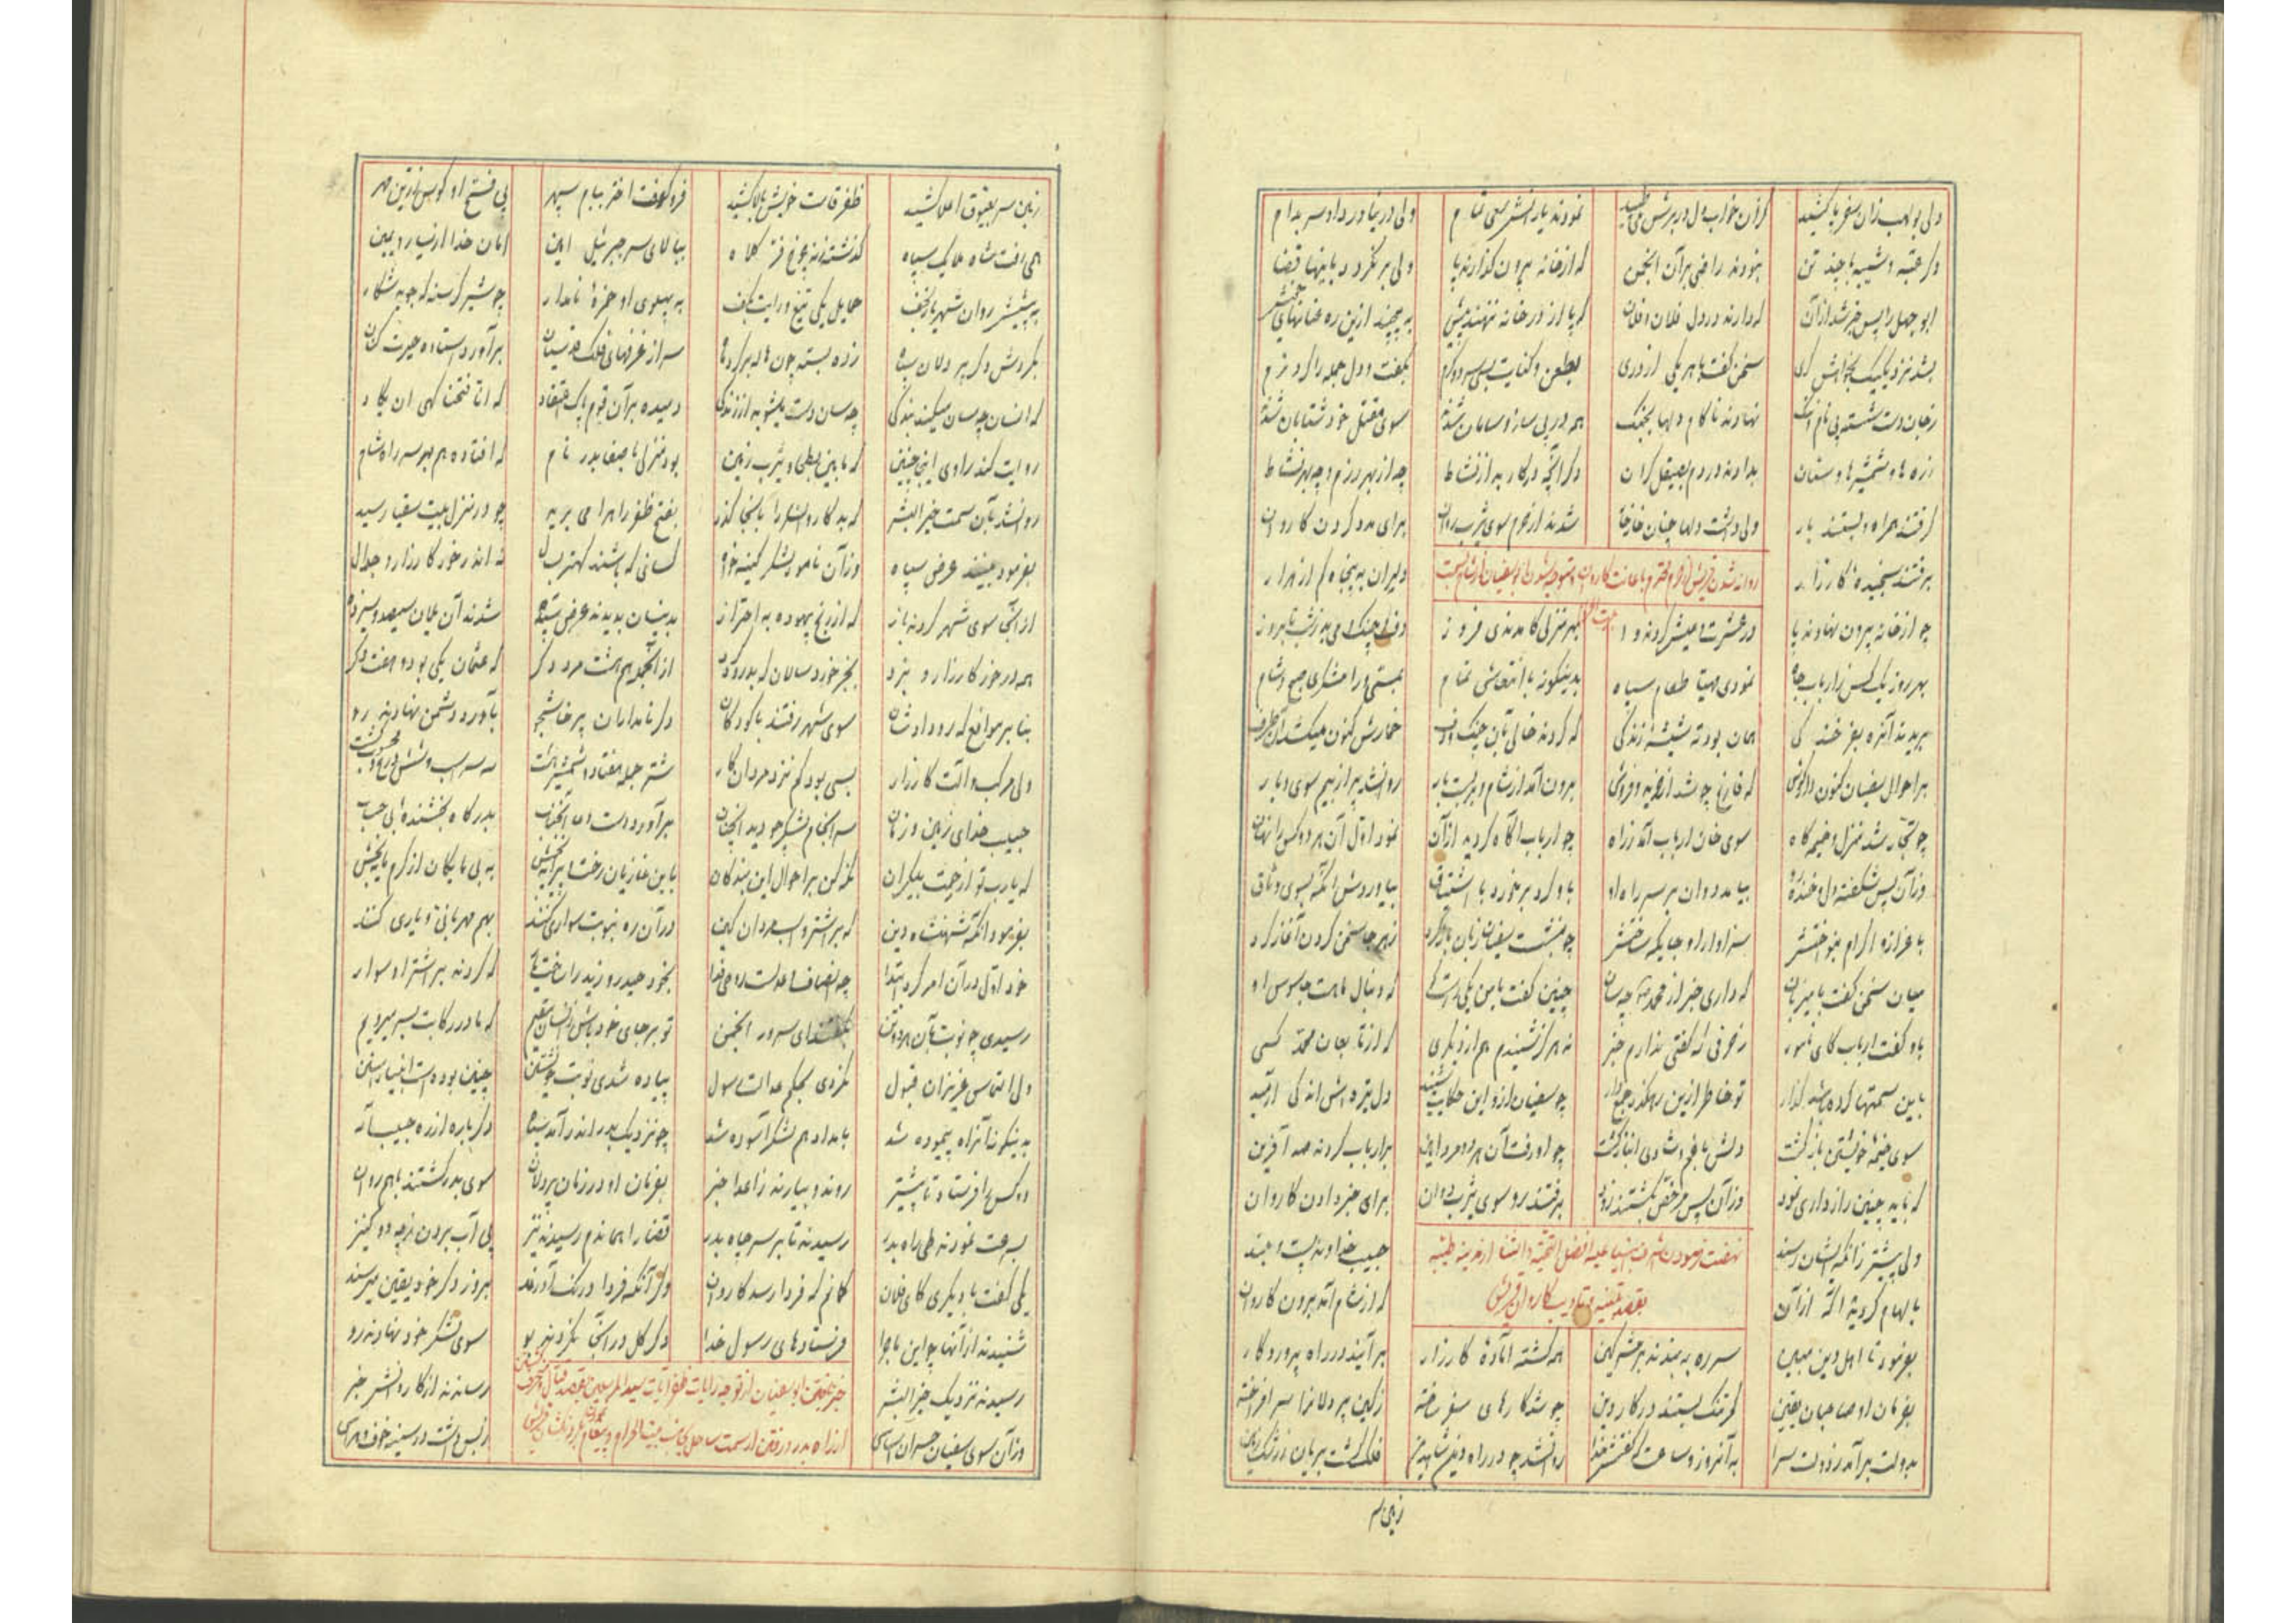 ولی بولهب زان سفر پا کشید کزان خواب دل در برش می‌طپید نمودند یارانش سعی تمام ولی در نیاورد او سر بدام
دگر عتبه و شیبه با چند تن نبودند راضی برآن انجمن که از خانه بیرون گذارند پا ولی برنگردد باینها قضا
ابوجهل را پس خبر شد ازآن که دارند در دل فلان و فلان که پا از در خانه ننهند پیش به پیچند ازین ره عنانهای خویش
بشد نزد یک‌یک سخن گفت با هر یکی از دری بطعن و کنایت بسی سرد و گرم بگفت و دل جمله را کرد نرم
ز جان دست شسته پی نام و ننگ نهادند ناکام دلها بجنگ همه در پی ساز و سامان شدند سوی مقتل خود شتابان شدند
زره‌ها و شمشیرها و سنان بدادند در دم بصیقل گران دگر آنچه در کار بد از نشاط چه از بهر رزم و چه بهر نشاط
گرفتند همراه و بستند بار ولی داشت دلها چنان خار خار شدند از حرم سوی یثرب روان برای مدد کردن کاروان
برفتند سنجیده کارزار دلیران به پنجاه کم از هزار
روانه شدن قریش از حرم محترم باعانت کاروان و متوجه شدن ابوسفیان از شام
چو از خانه بیرون نهادند پا در عشرت و عیش کردند وا بهر منزلی کامدندی فرود دف و چنگ و می بد ز شب تا بروز
بهر روز یک کس ز ارباب جاه نمودی مهیا طعام سپاه بدینگونه با انتعاشی تمام
بریدند آن ره بفرخندگی همان بود ته شیشه زندگی که کردند خالی بآن چنگ و دف خمارش کنون میکشد آن طرف
بر احوال سفیان کنون دار گوش که فارغ چو شد از خرید و فروش برون آمد از شام و بربست بار روانشد پر از بیم سوی دیار
سوی خان ارباب آمد ز راه چو ارباب آگاه گردید ازآن
وزآن پس شگفته دل و خنده‌رو بیامد دوان بر سر راه او باو کرد برخورد با اشتیاق بیاوردش آنگه بسوی وثاق
با عزاز و اکرام بنواختش سزاوار او جایگه ساختش چو بنشست سفیان زبان باز کرد ز هر جا سخن کردن آغاز کرد
میان سخن گفت با میزبان که داری خبر از محمد چه سان چنین گفت با من یکی که دنبال ماهست جاسوس او
باو گفت ارباب کای نامور ز حرفی که گفتی ندارم خبر نه هرگز شنیدم هم از دیگری که از تابعان محمد کسی
باین سمتها کرده باشد گذار تو خاطر ازین رهگذر جمع دار چو سفیان ازو این حکایت شنید دل تیره‌اش اندکی آرمید
سوی خیمه خویشتن بازگشت دلش با غم و شادی انباز گشت چو او رفت آن هر دو مرد امین بر ارباب کردند صد آفرین
که باید چنین رازداری نمود وزآن پس مرخص بگشتند زود برفتند رو سوی یثرب دوان برای خبر دادن کاروان
ولی پیشتر زآنکه ایشان رسند حبیب خداوند پست و بلند
نهضت فرمودن اشرف انبیا علیه افضل التحیة و الثنا از مدینه طیبه
بقصد تنبیه و تادیب کاروان قریش
بالهام گردید آگه ازآن که از شام آمد برون کاروان
بفرمود تا اهل دین مبین سر ره به بندند بر مشرکین همه گشته آماده کارزار برآیند در راه پروردگار
بفرمان او صاحبان یقین کمر تنگ بستند در کار دین چو شد کارهای سفر ساخته ز کین پردلانرا سر افراخته
بدولت برآمد ز دولت سرا
زمین سر
زمین سر بعیوق اعلا کشید ظفر قامت خویش بالا کشید فروکوفت اختر ببام سپهر پی فتح او کوس زرین مهر
همی رفت شاه ملایک سپاه گذشته ز نه چرخ فر کلاه ببالای سر جبرئیل امین امان خدا از یسار و یمین
به پیشش روان شهریار نجف حمایل یکی تیغ و رایت بکف به پهلوی او حمزه نامدار چو شیر گرسنه که جوید شکار
بگردش دگر پردلان سپاه زده بسته چون هاله بر گرد ماه سر از غرفهای فلک قدسیان برآورد استاده حیرت کنان
که انسان چه سان میکند بندگی چه سان دست میشوید از زندگی دمیده برآن قوم پاک اعتقاد که انا فتحنا گهی ان یکاد
روایت کند راوی اینچنین که مابین بطحا و یثرب زمین بود منزلی باصفا بدر نام که افتاده هم بر سر راه شام
روانشد بآن سمت خیرالبشر که بد کاروانرا بآنجا گذر بفتح ظفر راه را می برید چو در منزل بیت سقیا رسید
بفرمود بینند عرض سپاه وزآن نامور لشکر کینه‌خواه کسانی که باشند کهتر بسال نه اندر خور کارزار و جدال
ازآنجا سوی شهر گردند باز که از رنج بیهوده به احتراز بدینسان بدیدند عرض سپاه شدند آن یلان سیصد و سیزده
همه در خور کارزار و نبرد بجز خردسالان که بد ازآنجمله هم هشت مرد دگر که عثمان یکی بود و هفت دگر
بنا بر موانع که رو دادشان سوی شهر رفتند با کودکان دگر نامداران پرخاشجو بآورد دشمن نهادند رو
ولی مرکب و آلت کارزار بسی بود کم نزد مردان کار شتر جمله هفتاد و شمشیر هشت سه اسب و شش درع
حبیب خدای زمین و زمان سرانجام لشکر چو دید آنچنان برآورد دست دعا آنجناب بدرگاه بخشنده بی حساب
که یارب تو از رحمت بیکران نگه کن بر احوال این بندگان باین غازیان رخت پیرایه بخش به بی مایگان از کرم مایه بخش
بفرمود آنگه شهنشاه دین که بر اشتر و اسب مردان کین درآن ره بنوبت سواری کنند بهم مهربانی و یاری کنند
خود اول درآن امر کرد ابتدا چه انصاف و عدلست روحی فدا بخود حیدر و زید را که گردند بر اشتر او سوار
رسیدی چو نوبت بآن هر دو تن بگفتند ای سرور انجمن تو بر جای خود باش زانسان مقیم که ما در رکابت بسر میرویم
ولی التماس عزیزان قبول نکردی بحکم عدالت رسول پیاده شدی نوبت خویشتن چنین بوده است انبیا را سنن
بدینگونه آن راه پیموده شد بامداد هم لشکر آسوده شد چو نزدیک بدر اندر آمد سپاه دگرباره از ره حبیب آله
دو کس را فرستاد تا پیشتر روند و بیارند ز اعدا خبر بفرمان او در زمان پردلان سوی بدر گشتند باهم روان
بسرعت نمودند طی راه بدر رسیدند تا بر سر چاه بدر قضا را همان دم رسیدند نیز پی آب بردن ز چه دو کنیز
یکی گفت با دیگری کای فلان گمانم که فردا رسد کاروان بروز دگر خود یقین میرسند
شنیدند از آنها چو این ماجرا فرستادهای رسول خدا دگر کل درآنجا نکردند سوی لشکر خود نهادند رو
رسیدند نزدیک خیرالبشر رساندند از کاروانش خبر
خبر یافتن ابوسفیان از توجه رایات ظفر آیات سید المرسلین بقصد قتال
از راه بدر و رفتن از سمت ساحل بجانب بیت الحرام
وزآن سوی سفیان ز بس داشت در سینه خوف و هراس